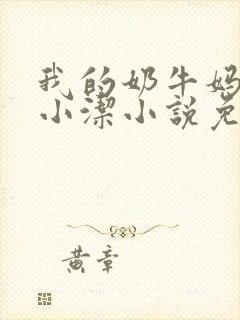 我的奶牛妈
小潔小說免
黄章